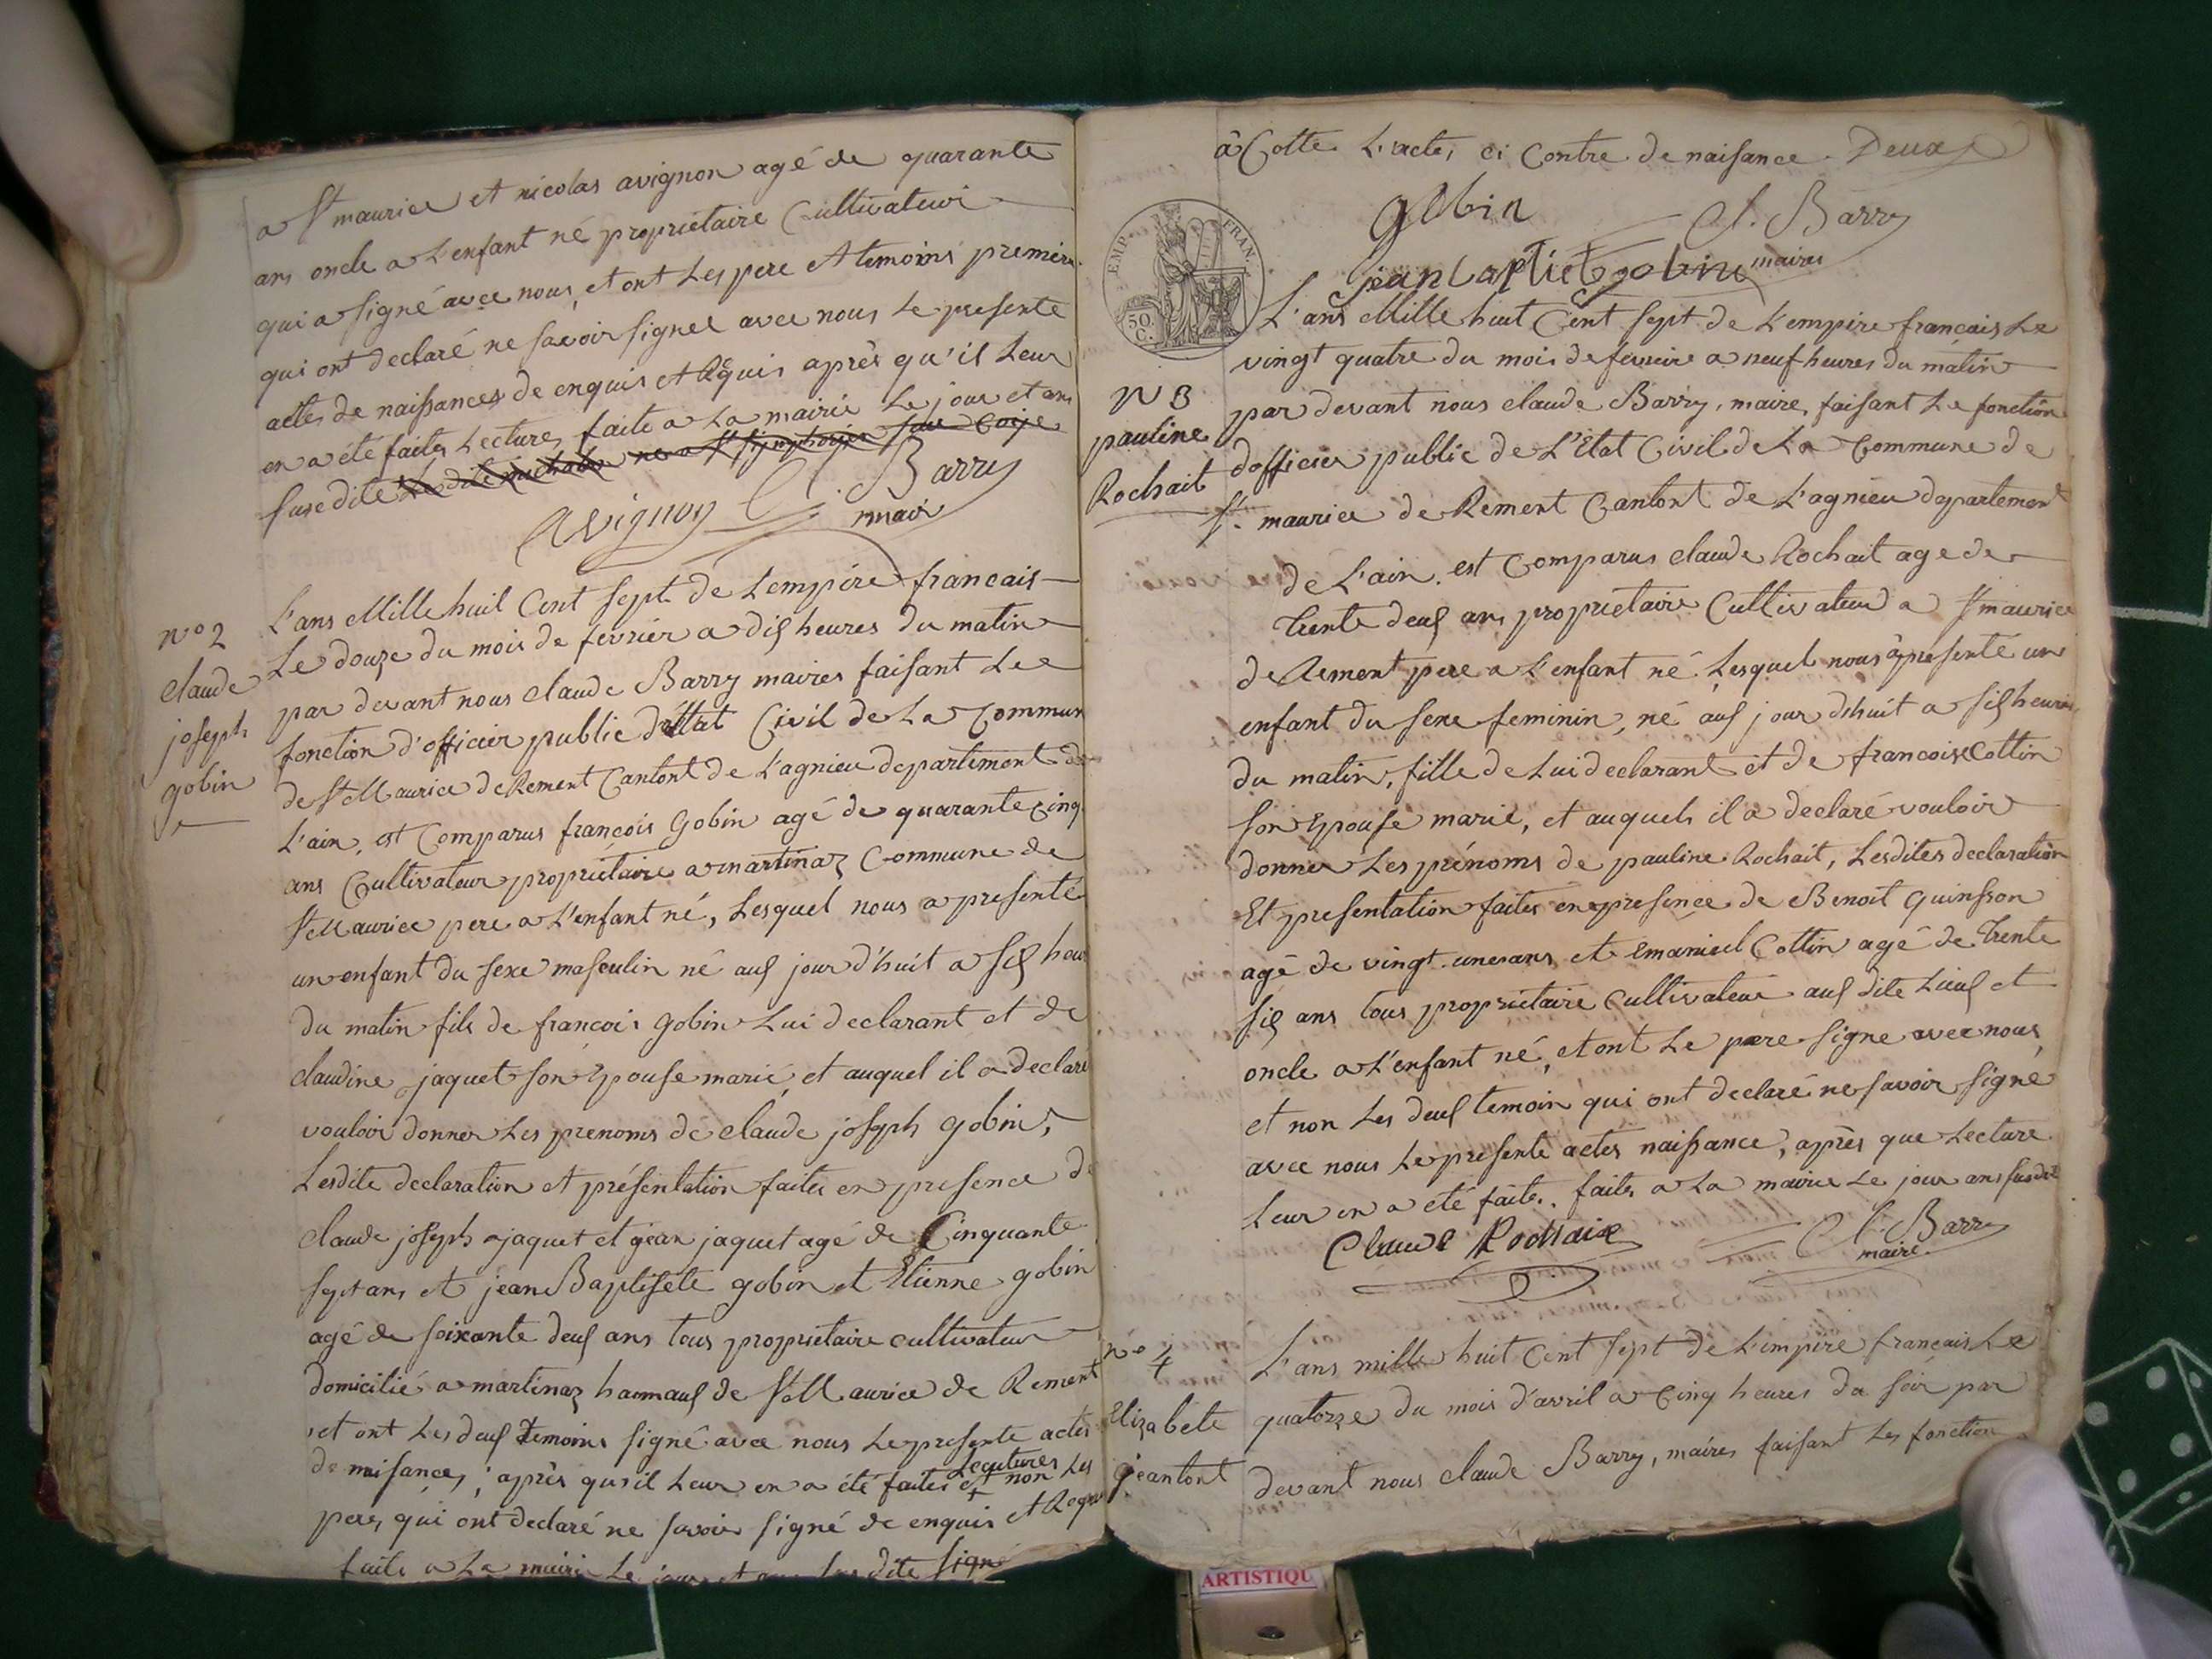 a St maurice et nicolas avignon agé de quarante
ans oncle a L'enfant né propriétaire Cultivateur
qui a signé avec nous, et ont Les pere et temoins premiere
qui ont declaré ne savoir signer avec nous le presente
actes de naissances de enquis et Requis après qu'il Leur
en a été faites Lectures, faite a La mairie Le jour et ans
susedite
avignon C. Barry
mair
n° 2
claude
joseph
gobin
L'ans Mille huit Cent sept de L'empire francais
Le douze du mois de fevrier a dix heures du matin
par devant nous claude Barry maires faisant Le
fonction d'officier public d'Etat Civil de La Commun
de St Maurice de Rement Cantont de L'agnieu departement de
L'ain, est Comparus francois Gobin agé de quarante cinq
ans Cultivateur propriétaire a martinaz Commune de
St Maurice pere a L'enfant né, Lesquel nous a presenté
un enfant du sexe masculin né aus jour d'huit a six heu
du matin fils de francois gobin Lui declarant et de
claudine jaquet son Epouse marié, et auquel il a declaré
vouloir donner Les prenoms de claude joseph gobin,
Lesdite declaration et présentation faites en presence de
claude joseph jaquet et jean jaquet agé de Cinquante
sept ans et jean Baptisete gobin et Etienne gobin
agé de soixante deux ans tous propriétaire cultivateur
domicilié a martinaz hammaux de St Maurice de Rement
et ont Les deux temoins signé avec nous Le presente actes
de naisances, après qu'il Leur en a été faites Lectures et non Les
peres qui ont declaré ne savoir signé de enquis et Requis
faite a La mairie Le jour et ans susdite signé
a Cotte L'acte, ci Contre de naisance Deux
gobin C. Barry
jean baptiet gobin maires
EMP. FRAN.
50. C.
N 3
pauline
Rochait
L'ans Mille huit Cent sept de L'empire francais Le
vingt quatre du mois de fevrier a neuf heures du matin
par devant nous claude Barry, maire, faisant Le fonction
d'officier public de L'Etat Civil de La Commune de
St. maurice de Rement Cantont de L'agnieu departement
de L'ain. est Comparus claude Rochait age de
trente deux ans propriétaire Cultivateur a St maurice
de Rement pere a L'enfant né Lesquel nous a presenté un
enfant du sexe feminin, né aus jour dhuit a six heures
du matin, fille de Lui declarant et de francoise Cottin
son Epouse marié, et auquels il a declaré vouloir
donner Les prénoms de pauline Rochait, Lesdites declaration
Et presentation faites en presence de Benoit quinsson
agé de vingt-unesans et Emanieul Cottin agé de trente
six ans tous propriétaire Cultivateur aus dite Lieus et
oncle a L'enfant né, et ont Le pere signe avec nous
et non Les deux temoin qui ont declaré ne savoir signé
avec nous Le presente actes naissance, après que Lecture
Leur en a été faite. faites a La mairie Le jour ans susdit
Claude Rochait C. Barry
maire
n° 4
Elizabete
Geantont
L'ans mille huit Cent sept de L'empire francais Le
quatorze du mois d'avril a Cinq heures du soir par
devant nous claude Barry, maires faisant Les fonction
ARTISTIQU